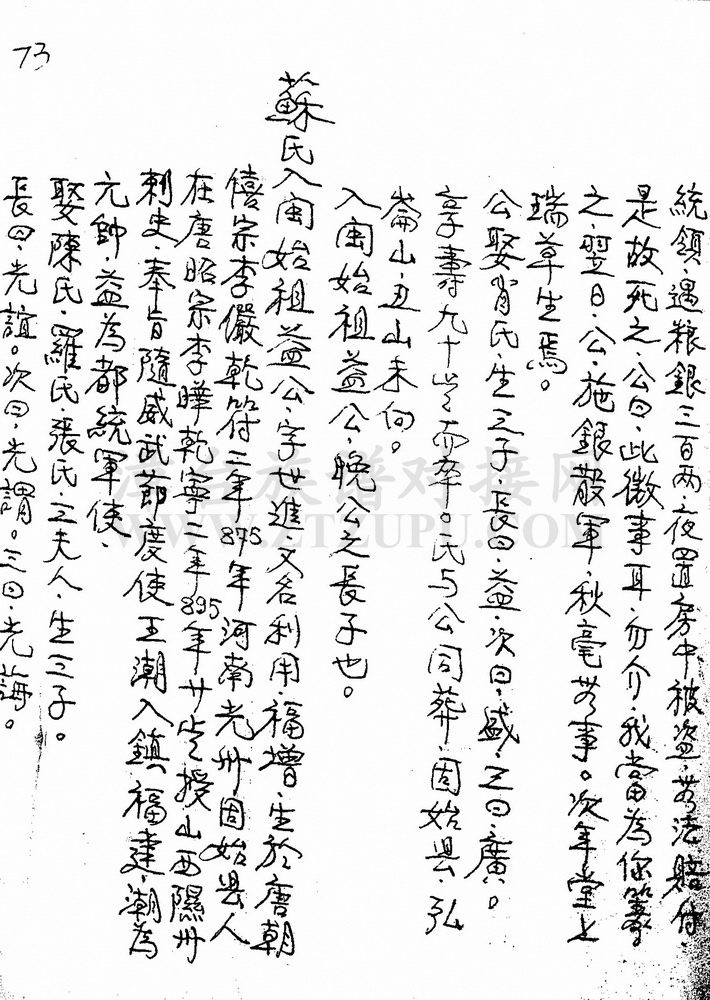 73
統領·遇粮銀三百两·夜置房中被盗·苦法賠付·
是故死之·公曰·此微事耳·勿介·我當為你籌
之·翌日·公·施銀散軍·秋毫無事。次年堂上
瑞草生焉。
公娶肖氏·生三子·長曰·益·次曰·盛·三曰·廣。
享壽九十岁而卒。氏与公同葬·固始县·弘
崙山·丑山未向。
入闽始祖益公·晚公之長子也。
蘇氏入闽始祖益公·字世進·又名利用·福增·生於唐朝
僖宗李儼乾符二年875年河南光州固始县人
在唐昭宗李曄乾寧二年895年廿岁授山西隰州
刺史·奉旨隨威武節度使王潮入鎮·福建·潮為
元帥·益為都統軍使·
娶陳氏·羅氏·張氏·三夫人·生三子。
長曰·光誼。次曰·光謂。三曰·光誨。
族谱对接网
WWW.ZTZUPU.COM